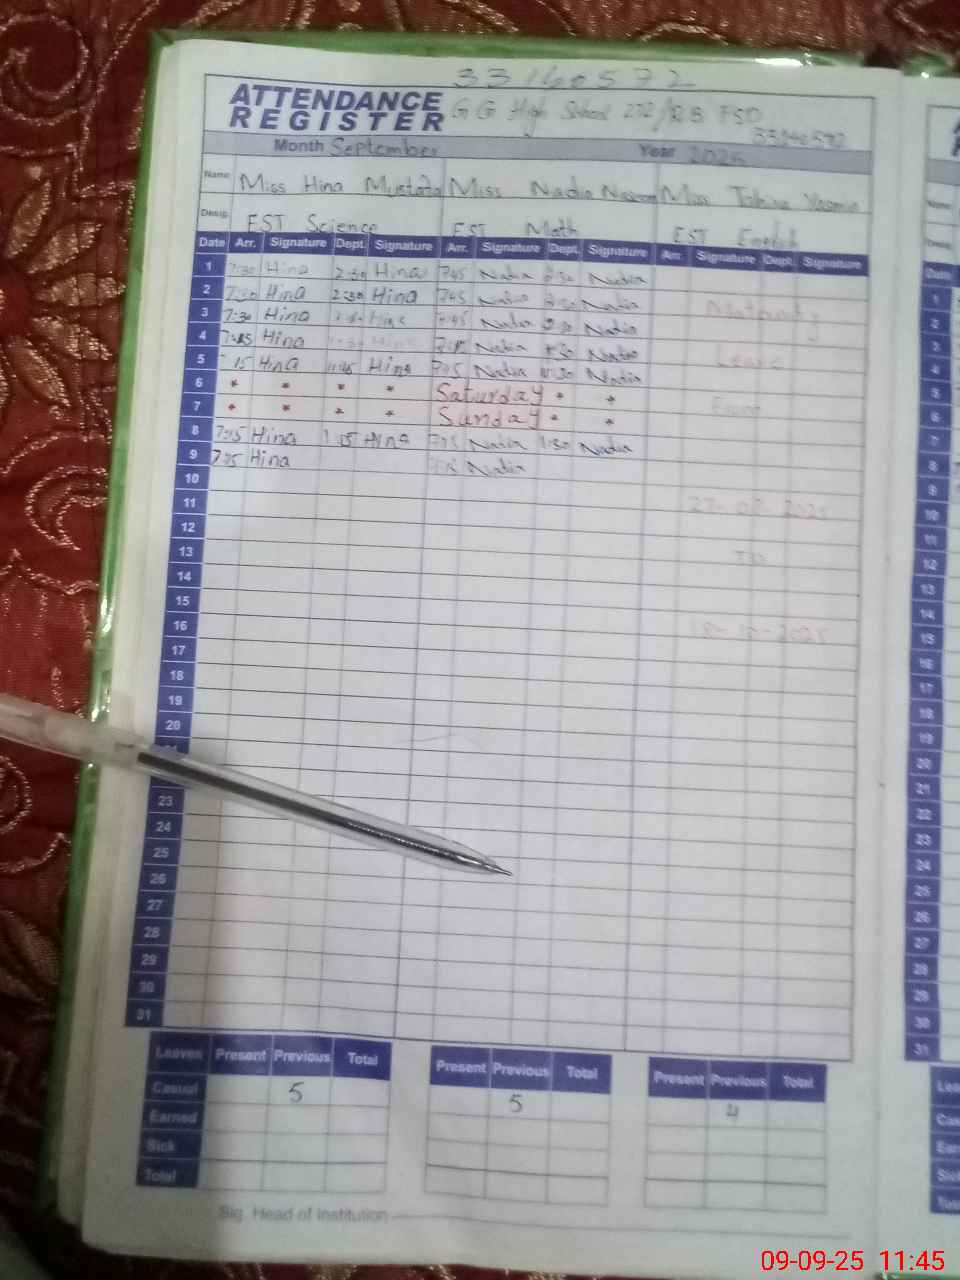 33160572
ATTENDANCE REGISTER
GG High School 202/RB FSD
33040572
Month September Year 2025
Name Miss Hina Mustafa Miss Nadia Miss Yasmin
Desig. EST Science EST Math EST English
Date Arr. Signature Dept. Signature Arr. Signature Dept. Signature Arr. Signature Dept. Signature
1 7:30 Hina 2:30 Hina 7:45 Nadia Nadia
2 7:30 Hina 2:30 Hina 7:45 Nadia Nadia Maternity
3 7:30 Hina 7:45 Nadia Nadia
4 Hina Nadia Nadia Leave
5 Hina Hina 7:15 Nadia Nadia
6 * * * * Saturday * *
7 * * * * Sunday * * From
8 7:15 Hina Hina 7:15 Nadia 1:30 Nadia
9 Hina Nadia
10
11 2025
12
13 To
14
15
16 2025
17
18
19
20
23
24
25
26
27
28
29
30
31
Leaves Present Previous Total Present Previous Total Present Previous Total
Casual 5 5 4
Earned
Sick
Total
Sig. Head of Institution
Name
Desig.
Date
1
2
3
4
5
6
7
8
9
10
11
12
13
14
15
16
17
18
19
20
21
22
23
24
25
26
27
28
29
30
31
09-09-25 11:45